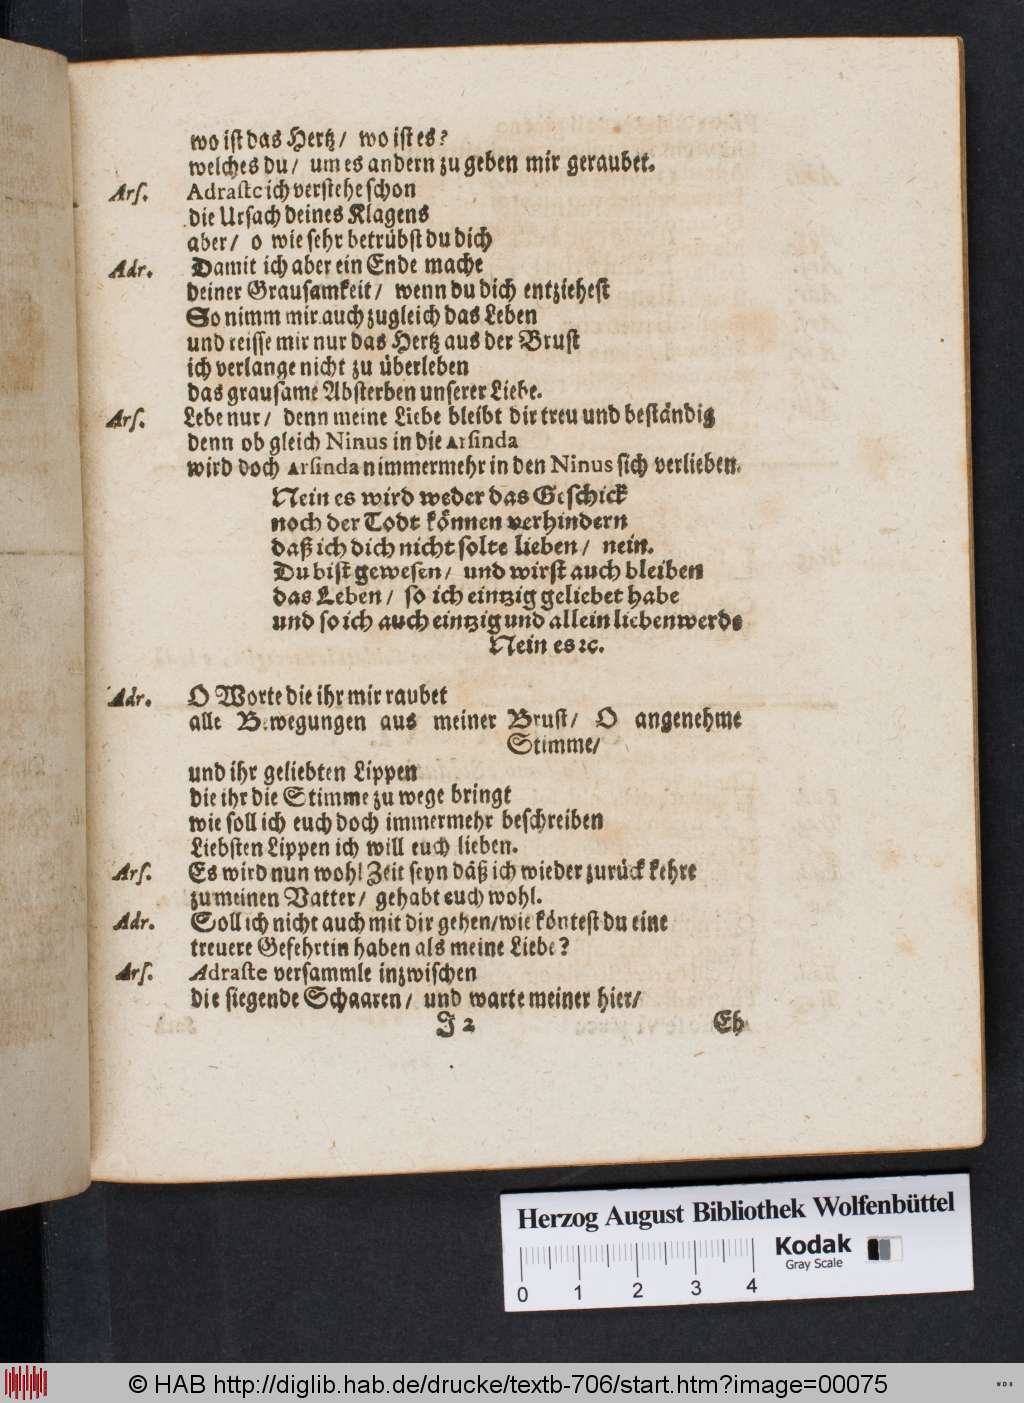 wo ist das Hertz/ wo ist es?
welches du/ um es andern zu geben mir geraubet.
Ars. Adraste ich verstehe schon
die Ursach deines Klagens
aber/ o wie sehr betrübst du dich
Adr. Damit ich aber ein Ende mache
deiner Grausamkeit/ wenn du dich entziehest
So nimm mir auch zugleich das Leben
und reisse mir nur das Hertz aus der Brust
ich verlange nicht zu überleben
das grausame Absterben unserer Liebe.
Ars. Lebe nur/ denn meine Liebe bleibt dir treu und beständig
denn ob gleich Ninus in die Arsinda
wird doch Arsinda nimmermehr in den Ninus sich verlieben.
Nein es wird weder das Geschick
noch der Todt können verhindern
daß ich dich nicht solte lieben/ nein.
Du bist gewesen/ und wirst auch bleiben
das Leben/ so ich eintzig geliebet habe
und so ich auch eintzig und allein lieben werde
Nein es ꝛc.
Adr. O Worte die ihr mir raubet
alle Bewegungen aus meiner Brust/ O angenehme
Stimme/
und ihr geliebten Lippen
die ihr die Stimme zu wege bringt
wie soll ich euch doch immermehr beschreiben
Liebsten Lippen ich will euch lieben.
Ars. Es wird nun wohl Zeit seyn däß ich wieder zurück kehre
zu meinen Vatter/ gehabt euch wohl.
Adr. Soll ich nicht auch mit dir gehen/ wie köntest du eine
treuere Gefehrtin haben als meine Liebe?
Ars. Adraste versammle inzwischen
die siegende Schaaren/ und warte meiner hier/
J 2 Eh
Herzog August Bibliothek Wolfenbüttel
Kodak
Gray Scale
0 1 2 3 4
© HAB http://diglib.hab.de/drucke/textb-706/start.htm?image=00075